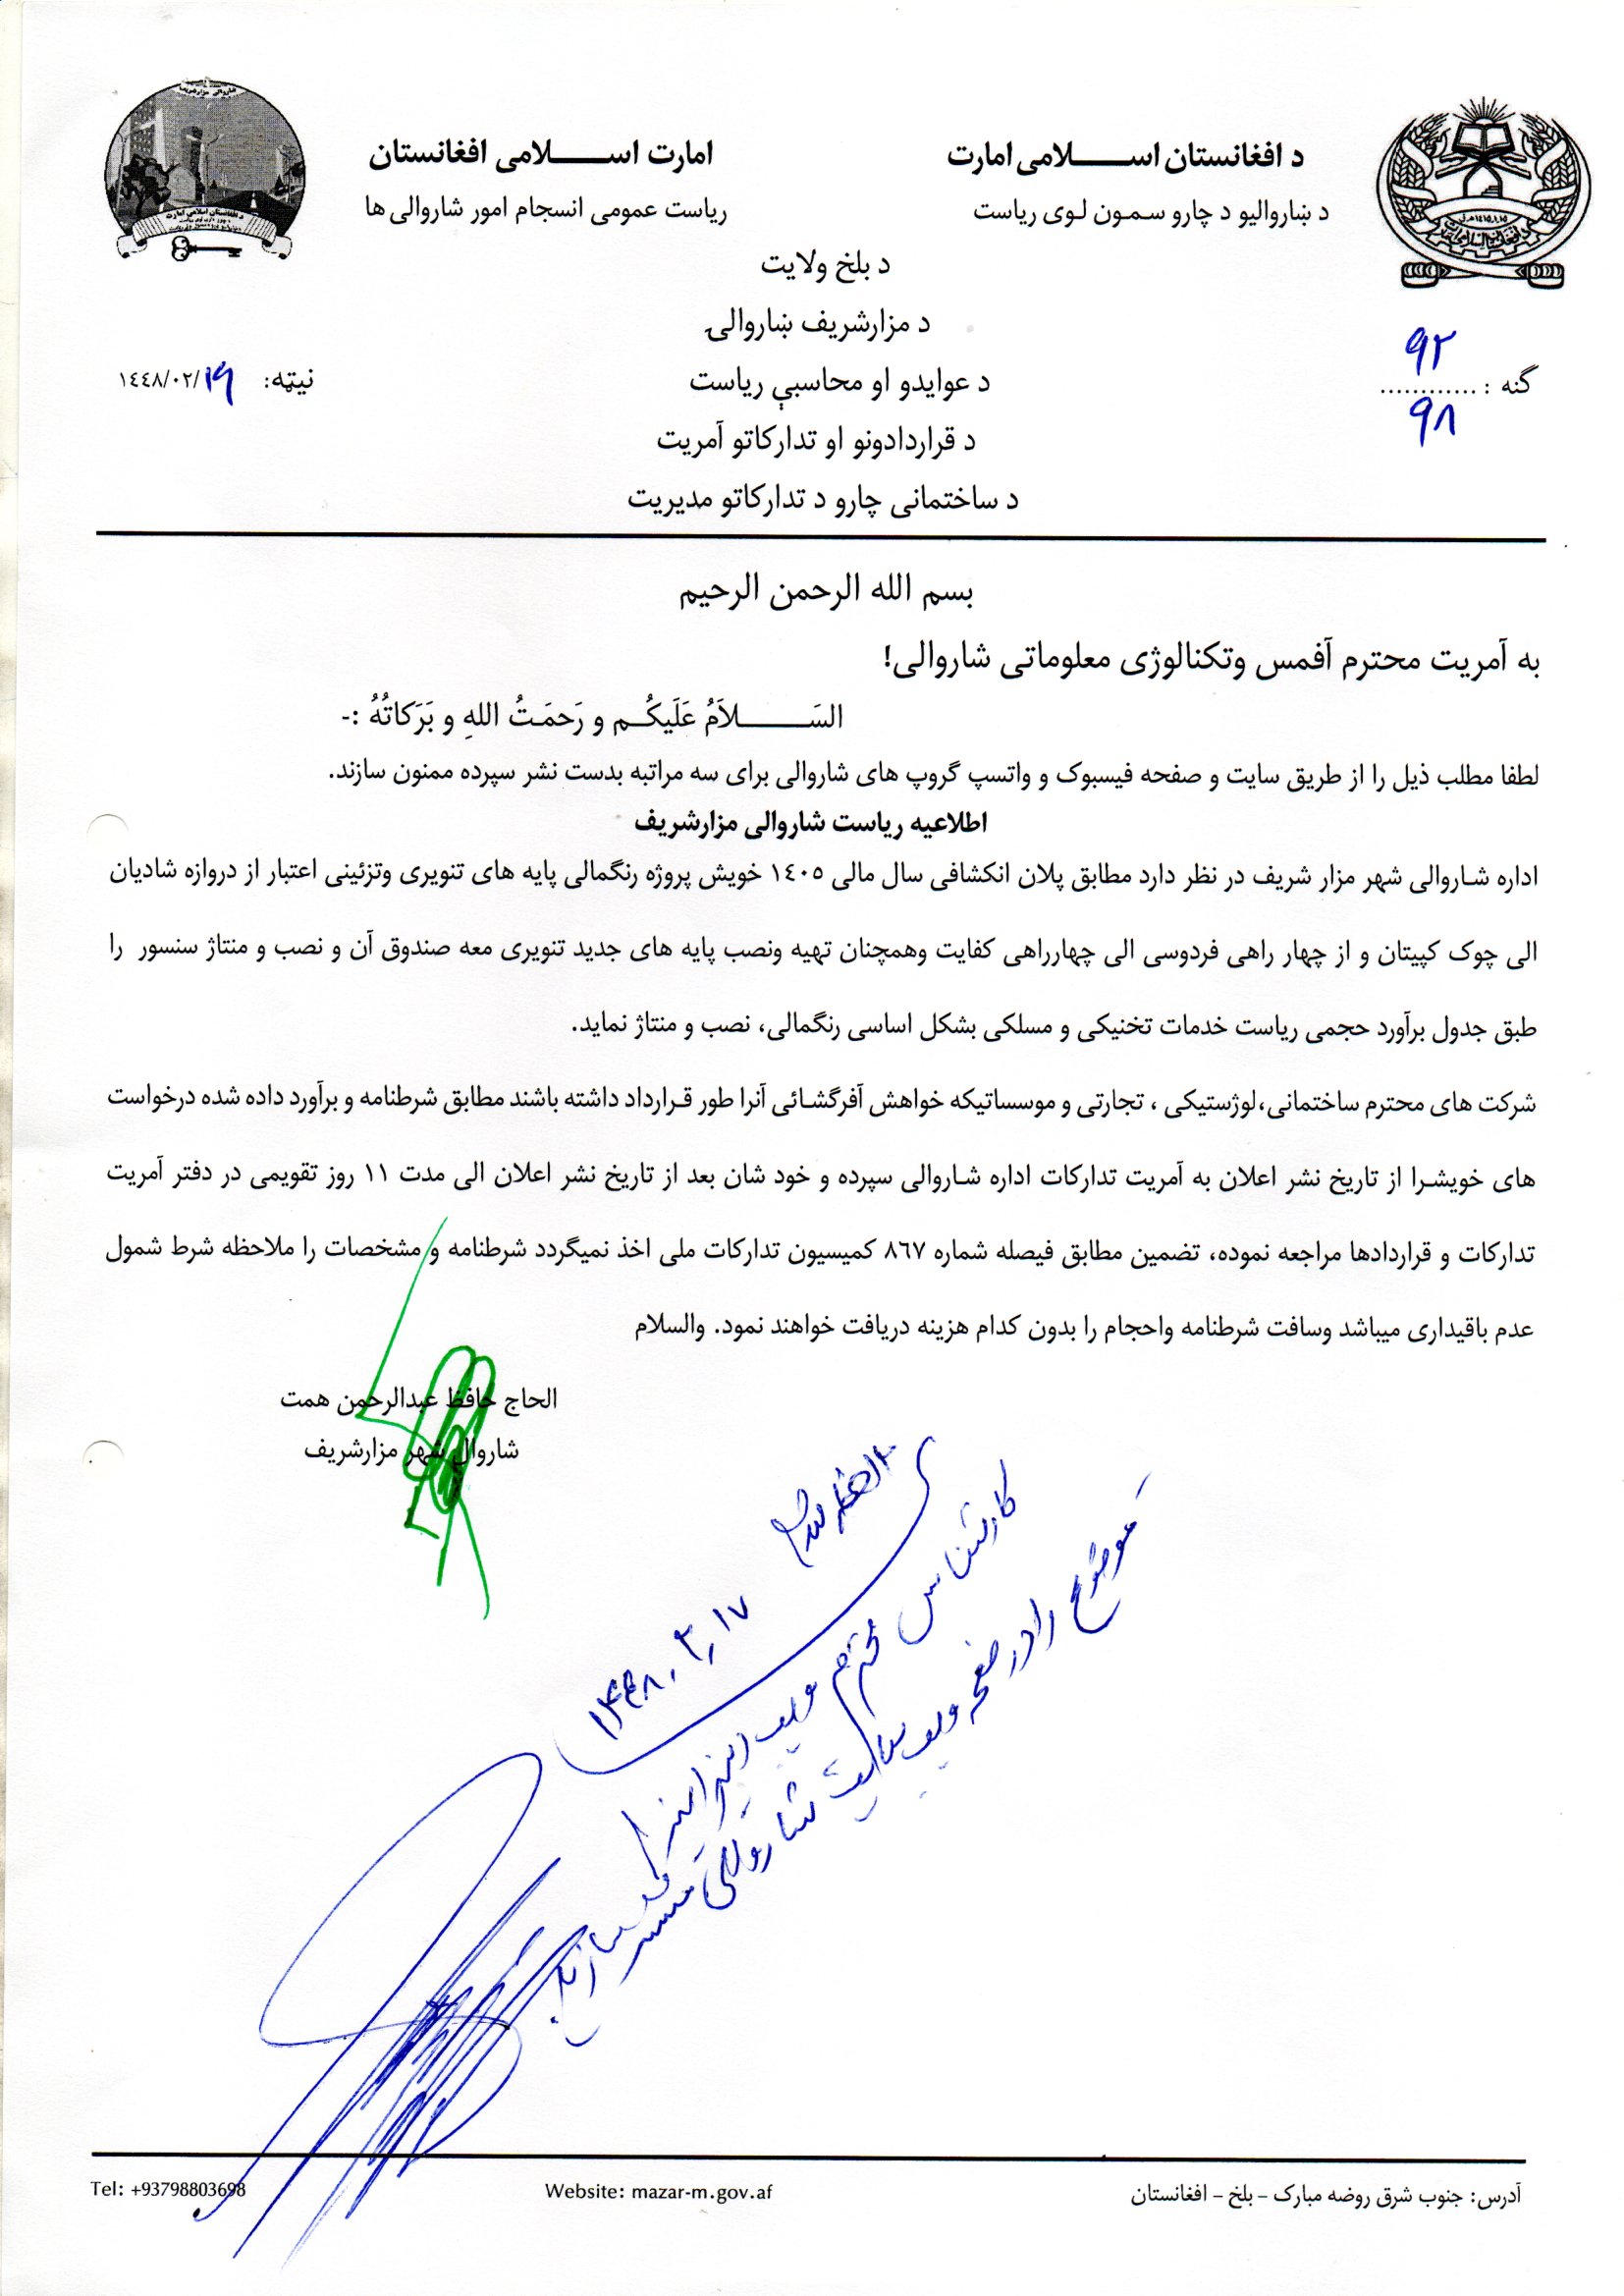 د افغانستان اســـــلامی امارت
امارت اســـــلامی افغانستان
د ښاروالیو د چارو سمون لوی ریاست
ریاست عمومی انسجام امور شاروالی ها
د بلخ ولایت
د مزارشریف ښاروالۍ
د عوایدو او محاسبې ریاست
د قراردادونو او تدارکاتو آمریت
د ساختمانی چارو د تدارکاتو مدیریت
گڼه : ............
۹۲
۹۸
نیټه: ١٤٤٨/٠٢/۱۹
بسم الله الرحمن الرحیم
به آمریت محترم آفمس وتکنالوژی معلوماتی شاروالی!
السَـــــــلاَمُ عَلَیکُــم و رَحمَـتُ اللهِ و بَرَکاتُهُ :-
لطفا مطلب ذیل را از طریق سایت و صفحه فیسبوک و واتسپ گروپ های شاروالی برای سه مراتبه بدست نشر سپرده ممنون سازند.
اطلاعیه ریاست شاروالی مزارشریف
اداره شاروالی شهر مزار شریف در نظر دارد مطابق پلان انکشافی سال مالی ١٤٠٥ خویش پروژه رنگمالی پایه های تنویری وتزئینی اعتبار از دروازه شادیان
الی چوک کپیتان و از چهار راهی فردوسی الی چهارراهی کفایت وهمچنان تهیه ونصب پایه های جدید تنویری معه صندوق آن و نصب و منتاژ سنسور را
طبق جدول برآورد حجمی ریاست خدمات تخنیکی و مسلکی بشکل اساسی رنگمالی، نصب و منتاژ نماید.
شرکت های محترم ساختمانی،لوژستیکی ، تجارتی و موسساتیکه خواهش آفرگشائی آنرا طور قرارداد داشته باشند مطابق شرطنامه و برآورد داده شده درخواست
های خویشرا از تاریخ نشر اعلان به آمریت تدارکات اداره شاروالی سپرده و خود شان بعد از تاریخ نشر اعلان الی مدت ١١ روز تقویمی در دفتر آمریت
تدارکات و قراردادها مراجعه نموده، تضمین مطابق فیصله شماره ٨٦٧ کمیسیون تدارکات ملی اخذ نمیگردد شرطنامه و مشخصات را ملاحظه شرط شمول
عدم باقیداری میباشد وسافت شرطنامه واحجام را بدون کدام هزینه دریافت خواهند نمود. والسلام
الحاج حافظ عبدالرحمن همت
شاروال شهر مزارشریف
۱۴۴۸٫۲٫۱۷
کارشناس محترم ویب
موضوع را در صفحه ویب سایت شاروالی
آدرس: جنوب شرق روضه مبارک – بلخ – افغانستان
Website: mazar-m.gov.af
Tel: +93798803698